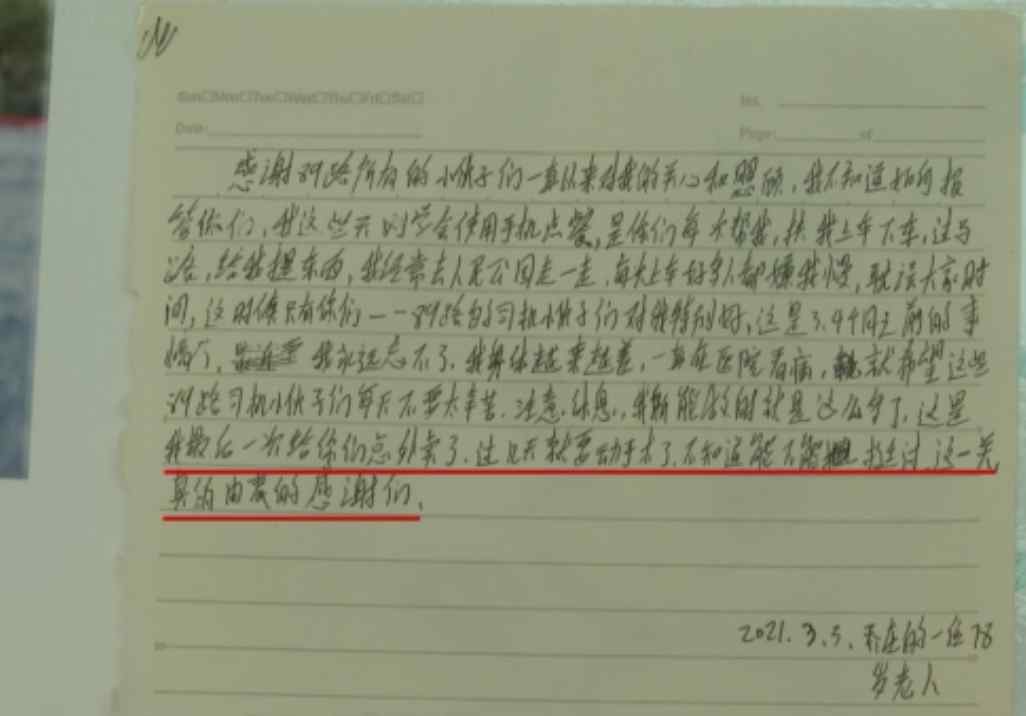 Sun□Mon□Tue□Wed□Thu□Fri□Sat□
No.
Date:
Page: of
感谢89路所有的小伙子们一直以来对我的关心和照顾,我不知道如何报
答你们,我这些天刚学会使用手机点餐,是你们每天帮我,扶我上车下车,过马
路,给我提东西,我经常去人民公园走一走,每次上车好多人都嫌我慢,耽误大家时
间,这时候只有你们——89路的司机小伙子们对我特别好,这是3.4个月之前的事
情了,我永远忘不了,我身体越来越差,一直在医院看病,就希望这些
89路司机小伙子们每天不要太辛苦,注意休息,我所能做的就是这么多了,这是
我最后一次给你们点外卖了,过几天就要动手术了,不知道能不能挺过这一关
真的由衷的感谢们,
2021.3.5.乔庄的一位78
岁老人